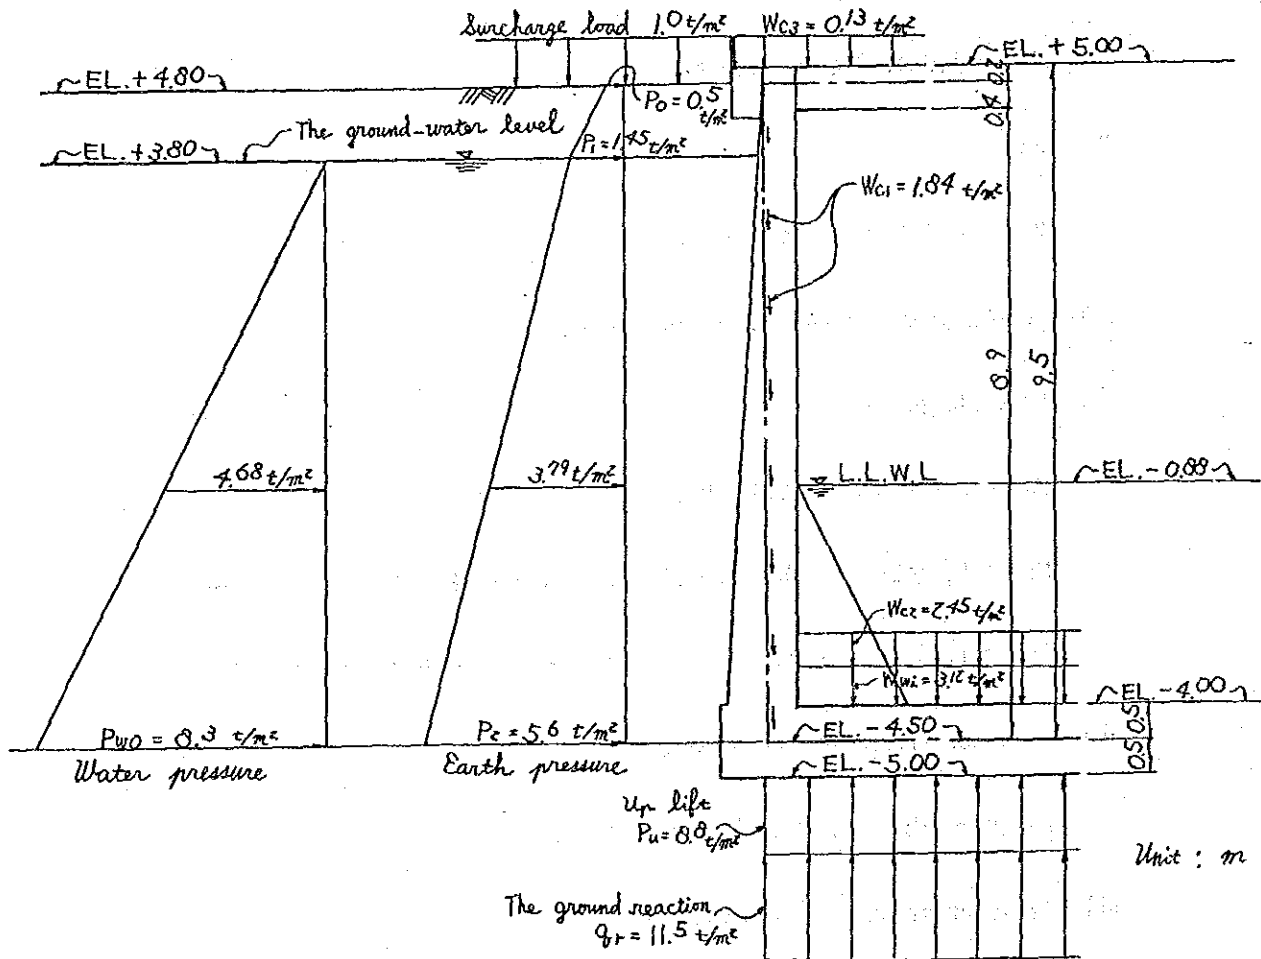 Surcharge load 1.0 t/m²
Wc3 = 0.13 t/m²
EL. + 5.00
EL. + 4.80
P₀ = 0.5 t/m²
0.2
0.4
The ground-water level
EL. +3.80
P₁ = 1.45 t/m²
Wc1 = 1.84 t/m²
8.9
9.5
4.68 t/m²
3.79 t/m²
L.L.W.L
EL. -0.88
Wc2 = 2.45 t/m²
Wwi = 3.12 t/m²
EL. -4.00
0.5
0.5
Pwo = 8.3 t/m²
P₂ = 5.6 t/m²
EL. -4.50
Water pressure
Earth pressure
EL. -5.00
Up lift
Pu = 8.8 t/m²
Unit : m
The ground reaction
qr = 11.5 t/m²